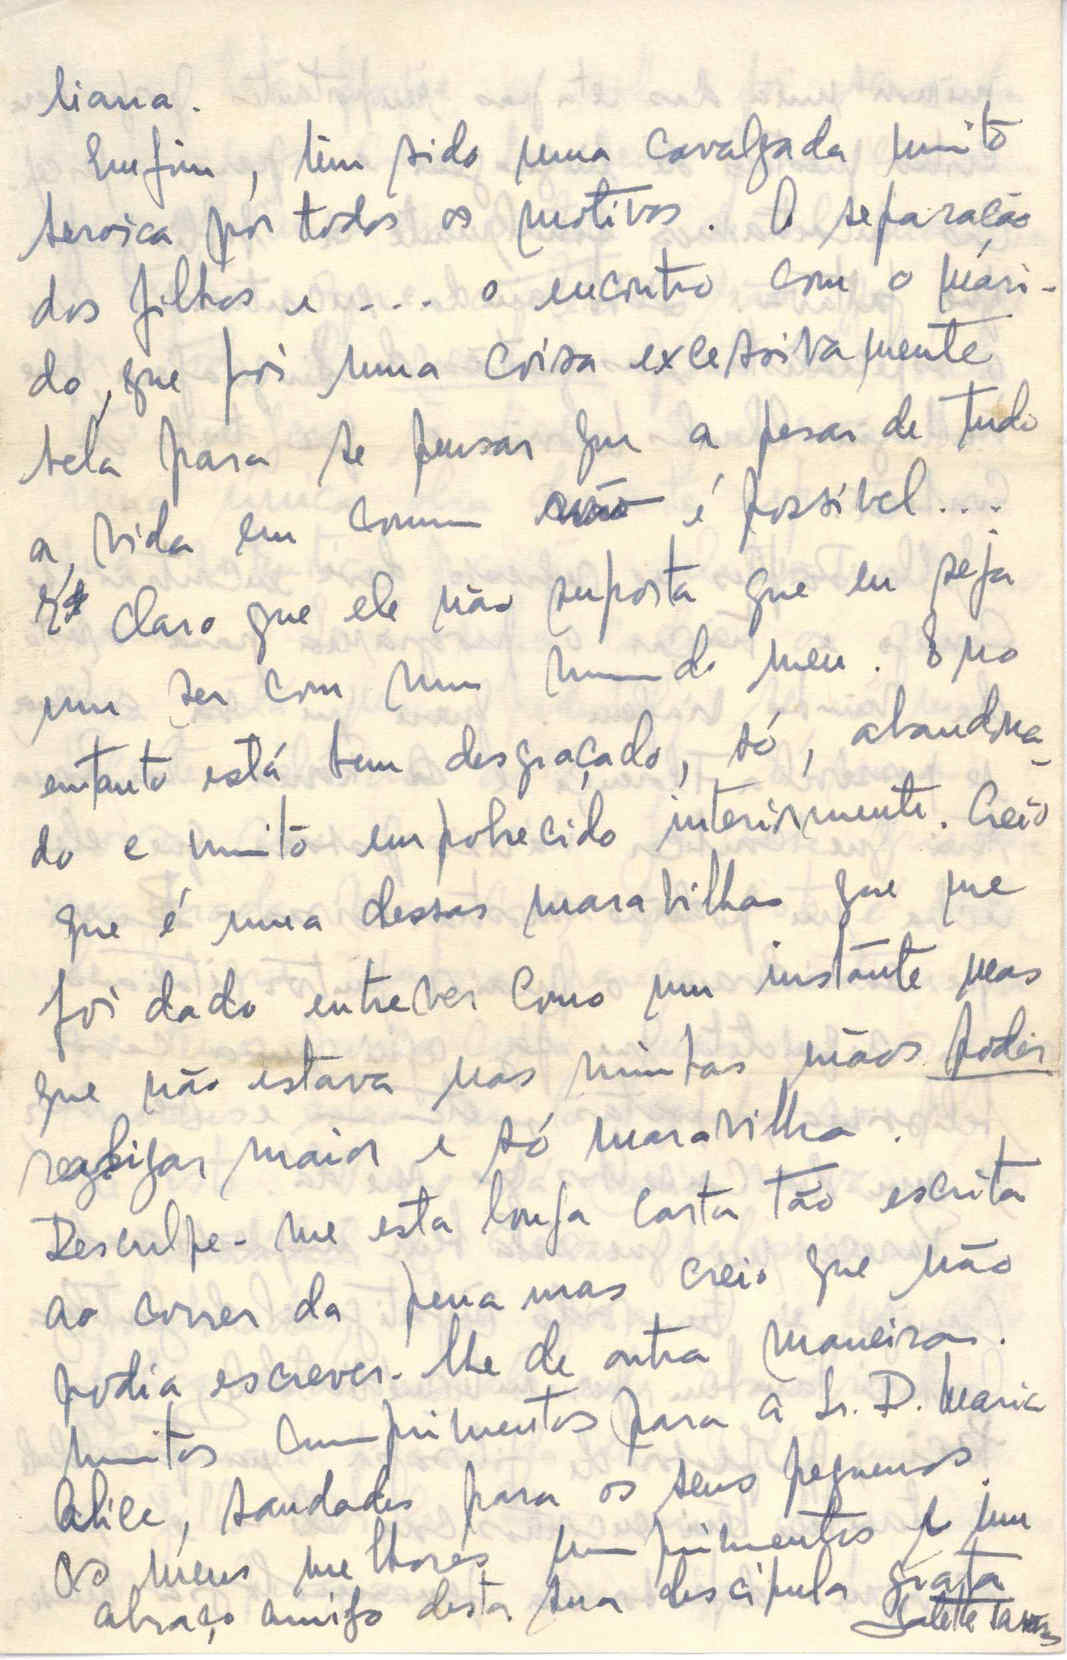 liana.
Enfim, tem sido uma cavalgada muito
heroica por todos os motivos. A separação
dos filhos e ... o encontro com o mari-
do, que foi uma coisa excessivamente
bela para se pensar que a pesar de tudo
a vida em comum é possível...
É claro que ele não suporta que eu seja
um ser com um mundo meu. E no
entanto está bem desgraçado, só, abandona-
do e muito empobrecido interiormente. Creio
que é uma dessas maravilhas que me
foi dado entrever como um instante mas
que não estava nas minhas mãos poder
realizar maior e só maravilha.
Desculpe-me esta longa carta tão escrita
ao correr da pena mas creio que não
podia escrever-lhe de outra maneira.
Muitos cumprimentos para a Sr. D. Maria
Alice, saudades para os seus pequenos.
Os meus melhores cumprimentos e um
abraço amigo desta sua discipula grata
Salette Tavares